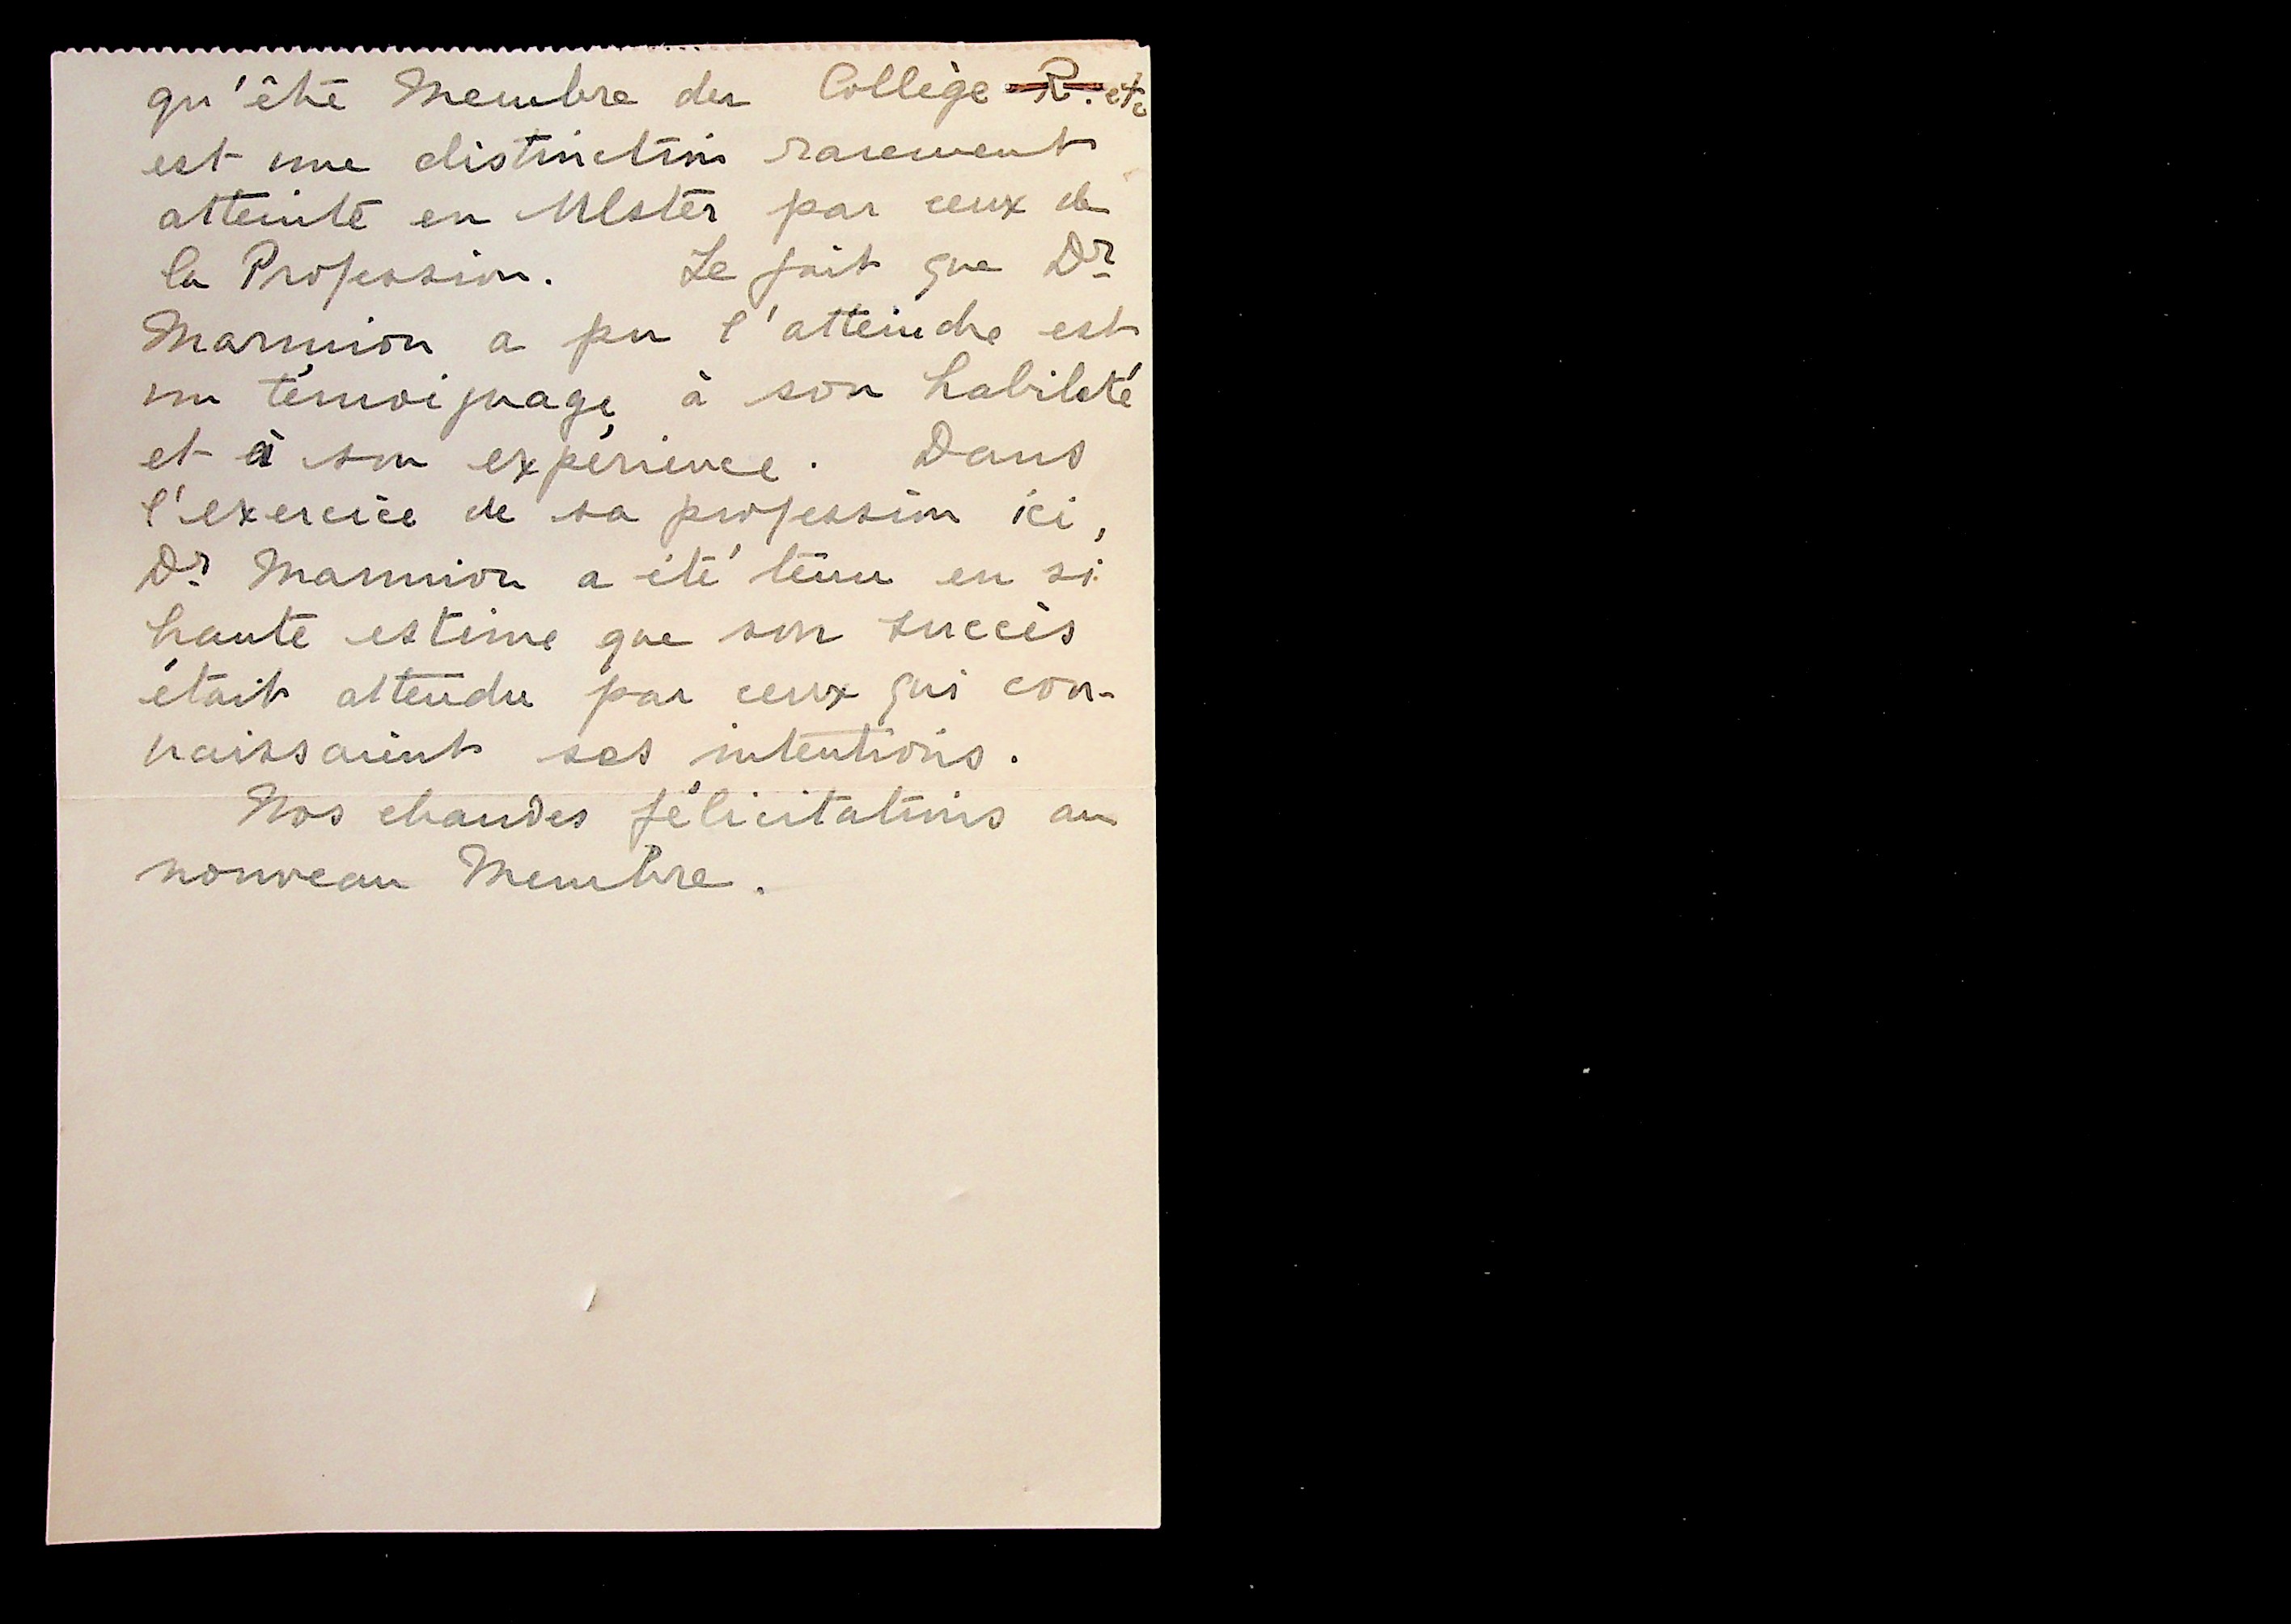 qu'être Membre du Collège R. etc
est une distinction rarement
atteinte en Ulster par ceux de
la Profession. Le fait que Dr
Marmion a pu l'atteindre est
un témoignage à son habileté
et à son expérience. Dans
l'exercice de sa profession ici,
Dr Marmion a été tenu en si
haute estime que son succès
était attendu par ceux qui con-
naissaient ses intentions.
Nos chaudes félicitations au
nouveau Membre.